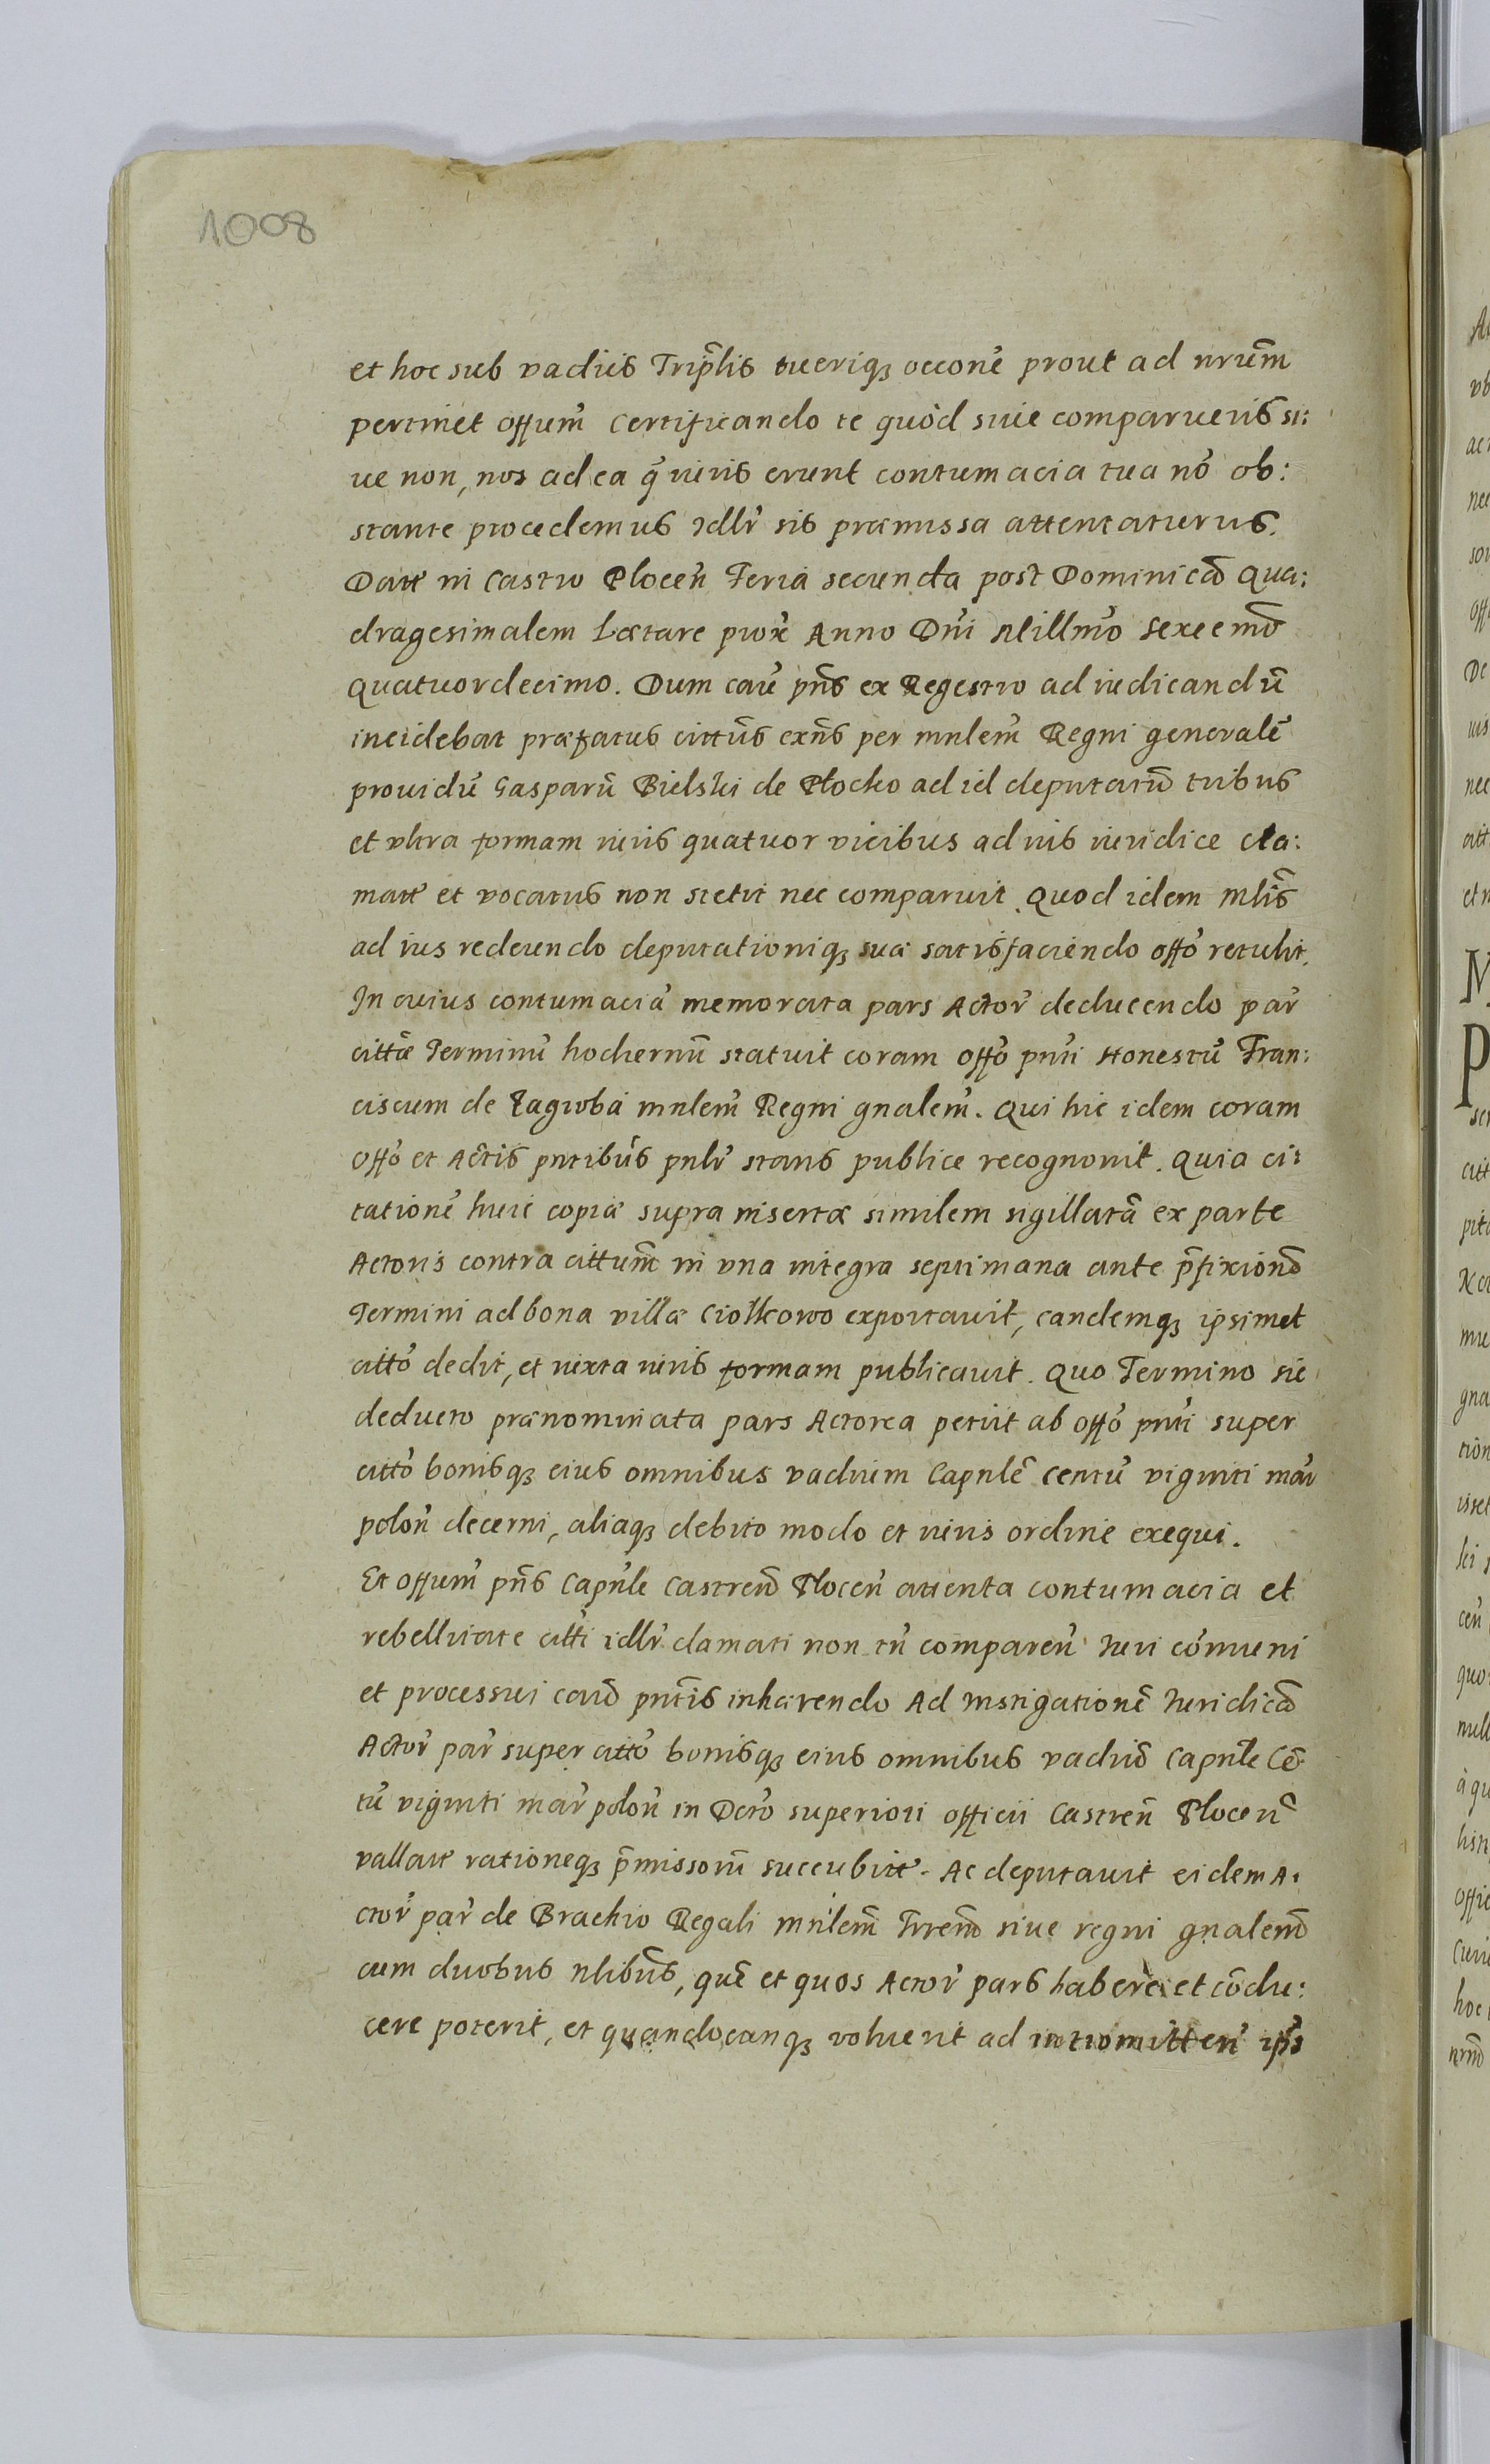 1008
et hoc sub vadiis Tripl̃is tueriq₃ occonẽ prout ad nrum̃
pertinet offum̃ Certificando te quòd siue comparueris si:
ue non, nos ad ea q̃ iuris erunt contumacia tua nõ ob:
stante procedemus Idlr̃ sis præmissa attentaturus.
Datt in Castro Plocen̄ Feria secunda post Dominicã Qua:
dragesimalem Lætare prox̃ Anno Dñi Millmõ Sexcemõ
Quatuordecimo. Dum caũ pñs ex Regestro ad iudicandũ
incidebat præfatus cittũs exñs per mnlem̃ Regni generalẽ
prouidũ Gasparũ Bielski de Plocko ad id deputatũ tribus
et vltra formam iuris quatuor vicibus ad ius iuridice cla:
matt et vocatus non stetit nec comparuit. Quod idem Mlis̃
ad ius redeundo deputationiq₃ suæ satisfaciendo offõ retulit.
In cuius contumaciã memorata pars Actor̃ deducendo par̃
cittæ̃ Terminũ hodiernũ statuit coram offõ pnti̇ Honestũ Fran:
ciscum de Zagroba mnlem̃ Regni gnalem̃. Qui hic idem coram
offõ et Actis̃ pntibũs pnlr̃ stans publice recognouit. Quia ci:
tationẽ huic copiæ supra insertæ similem sigillatã ex parte
Actoris contra cittum̃ in vna integra septimana ante p̃fixionẽ
Termini ad bona villæ Ciołkowo exportauit, eandemq₃ ipsimet
cittõ dedit, et iuxta iuris formam publicauit. Quo Termino sic
deducto prænominata pars Actorea petiit ab offõ pnti̇ super
cittõ bonisq₃ eius omnibus vadium Capnlẽ Centũ viginti mar̃
polon̄ decerni, aliaq₃ debito modo et iuris ordine exequi.
Et offum̃ pñs Capnl̃e Castren̄ Plocen̄ attenta contumacia et
rebelliate citti̇ idlr̃ clamati non tñ comparen̄ Iuri cõmuni
et processui caũ pnti̇s inhærendo Ad Instigationẽ Iuridicã
Actor̃ par̃ super cittõ bonisq₃ eius omnibus vadiũ Capnl̃e Cẽ
tũ viginti mar̃ polon̄ in Dctõ superiori officii Castren̄ Plocen̄
vallatt rationeq₃ p̃missorũ succubitt. Ac deputauit eidem A:
ctor̃ par̃ de Brachio Regali mnlem̃ Trrem̃ siue regni gnalem̃
cum duobus nlibũs, quẽ et quos Actor̃ pars habere et cõdu:
cere poterit, et quandocunq₃ voluerit ad intromitten̄ ips̃